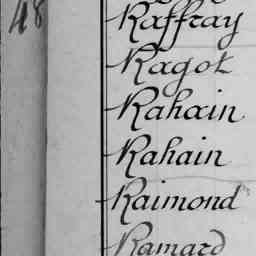 48
Raffray
Ragot
Rahain
Rahain
Raimond
Ramard